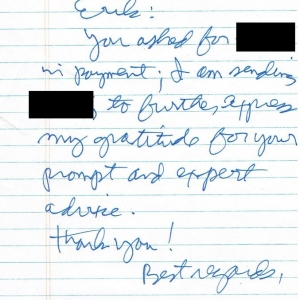 Erik:
You asked for
in payment; I am sending
, to further express
my gratitude for your
prompt and expert
advice.
Thank you!
Best regards,